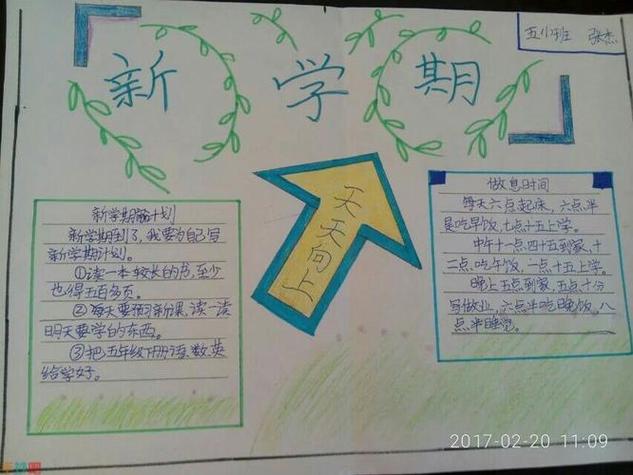 新学期
五(1)班 张杰
天天向上
新学期新计划
新学期到了,我要为自己写
新学期计划。
①读一本较长的书,至少
也得五百多页。
②每天要预习新课,读一读
明天要学的东西。
③把五年级下册语,数,英
给学好。
做息时间
每天六点起床,六点半
是吃早饭,七点十五上学。
中午十一点四十五到家,十
二点吃午饭,一点十五上学。
晚上五点到家,五点十分
写做业,六点半吃晚饭,八
点半睡觉。
2017-02-20 11:09